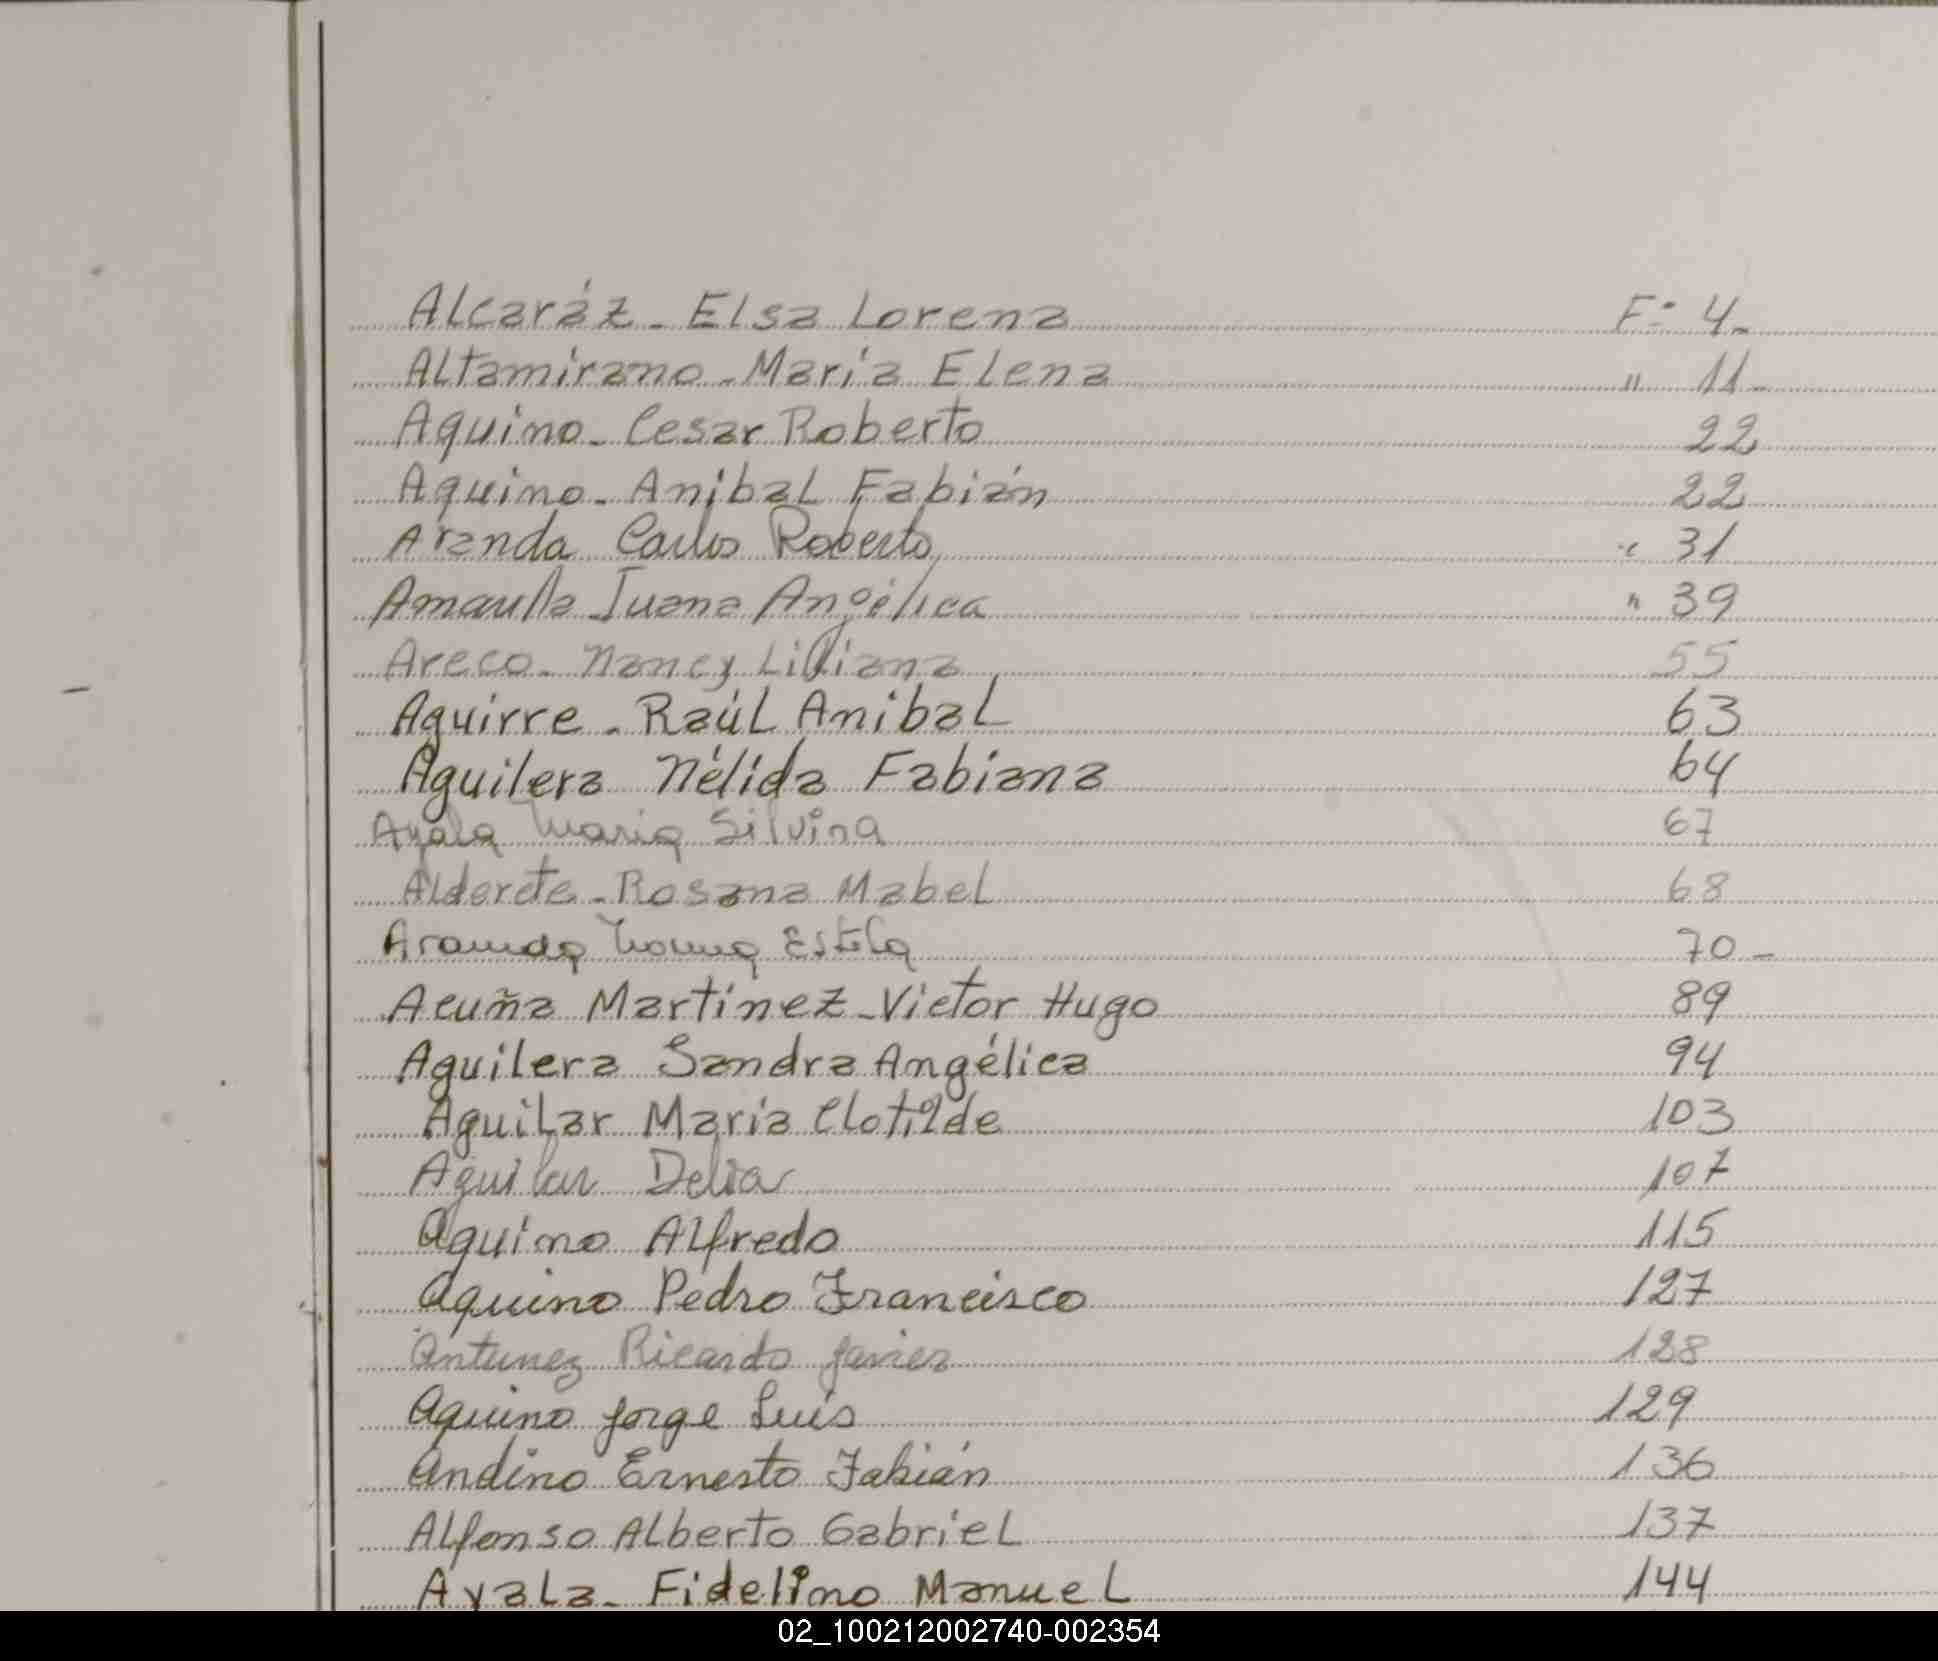 Alcaráz - Elsa Lorena F: 4-
Altamirano - María Elena " 11-
Aquino - Cesar Roberto 22
Aquino - Anibal Fabián 22
Aranda Carlos Roberto " 31
Juana Angélica " 39
Areco - Nancy Liliana 55
Aguirre - Raúl Anibal 63
Aguilera Nélida Fabiana 64
Ayala Maria Silvina 67
Alderete - Rosana Mabel 68
Estela 70-
Acuña Martínez - Victor Hugo 89
Aguilera Sandra Angélica 94
Aguilar María Clotilde 103
Aguilar Delia 107
Aquino Alfredo 115
Aquino Pedro Francisco 127
Antunez Ricardo Javier 128
Aquino Jorge Luis 129
Andino Ernesto Fabián 136
Alfonso Alberto Gabriel 137
Ayala - Fidelino Manuel 144
02_100212002740-002354